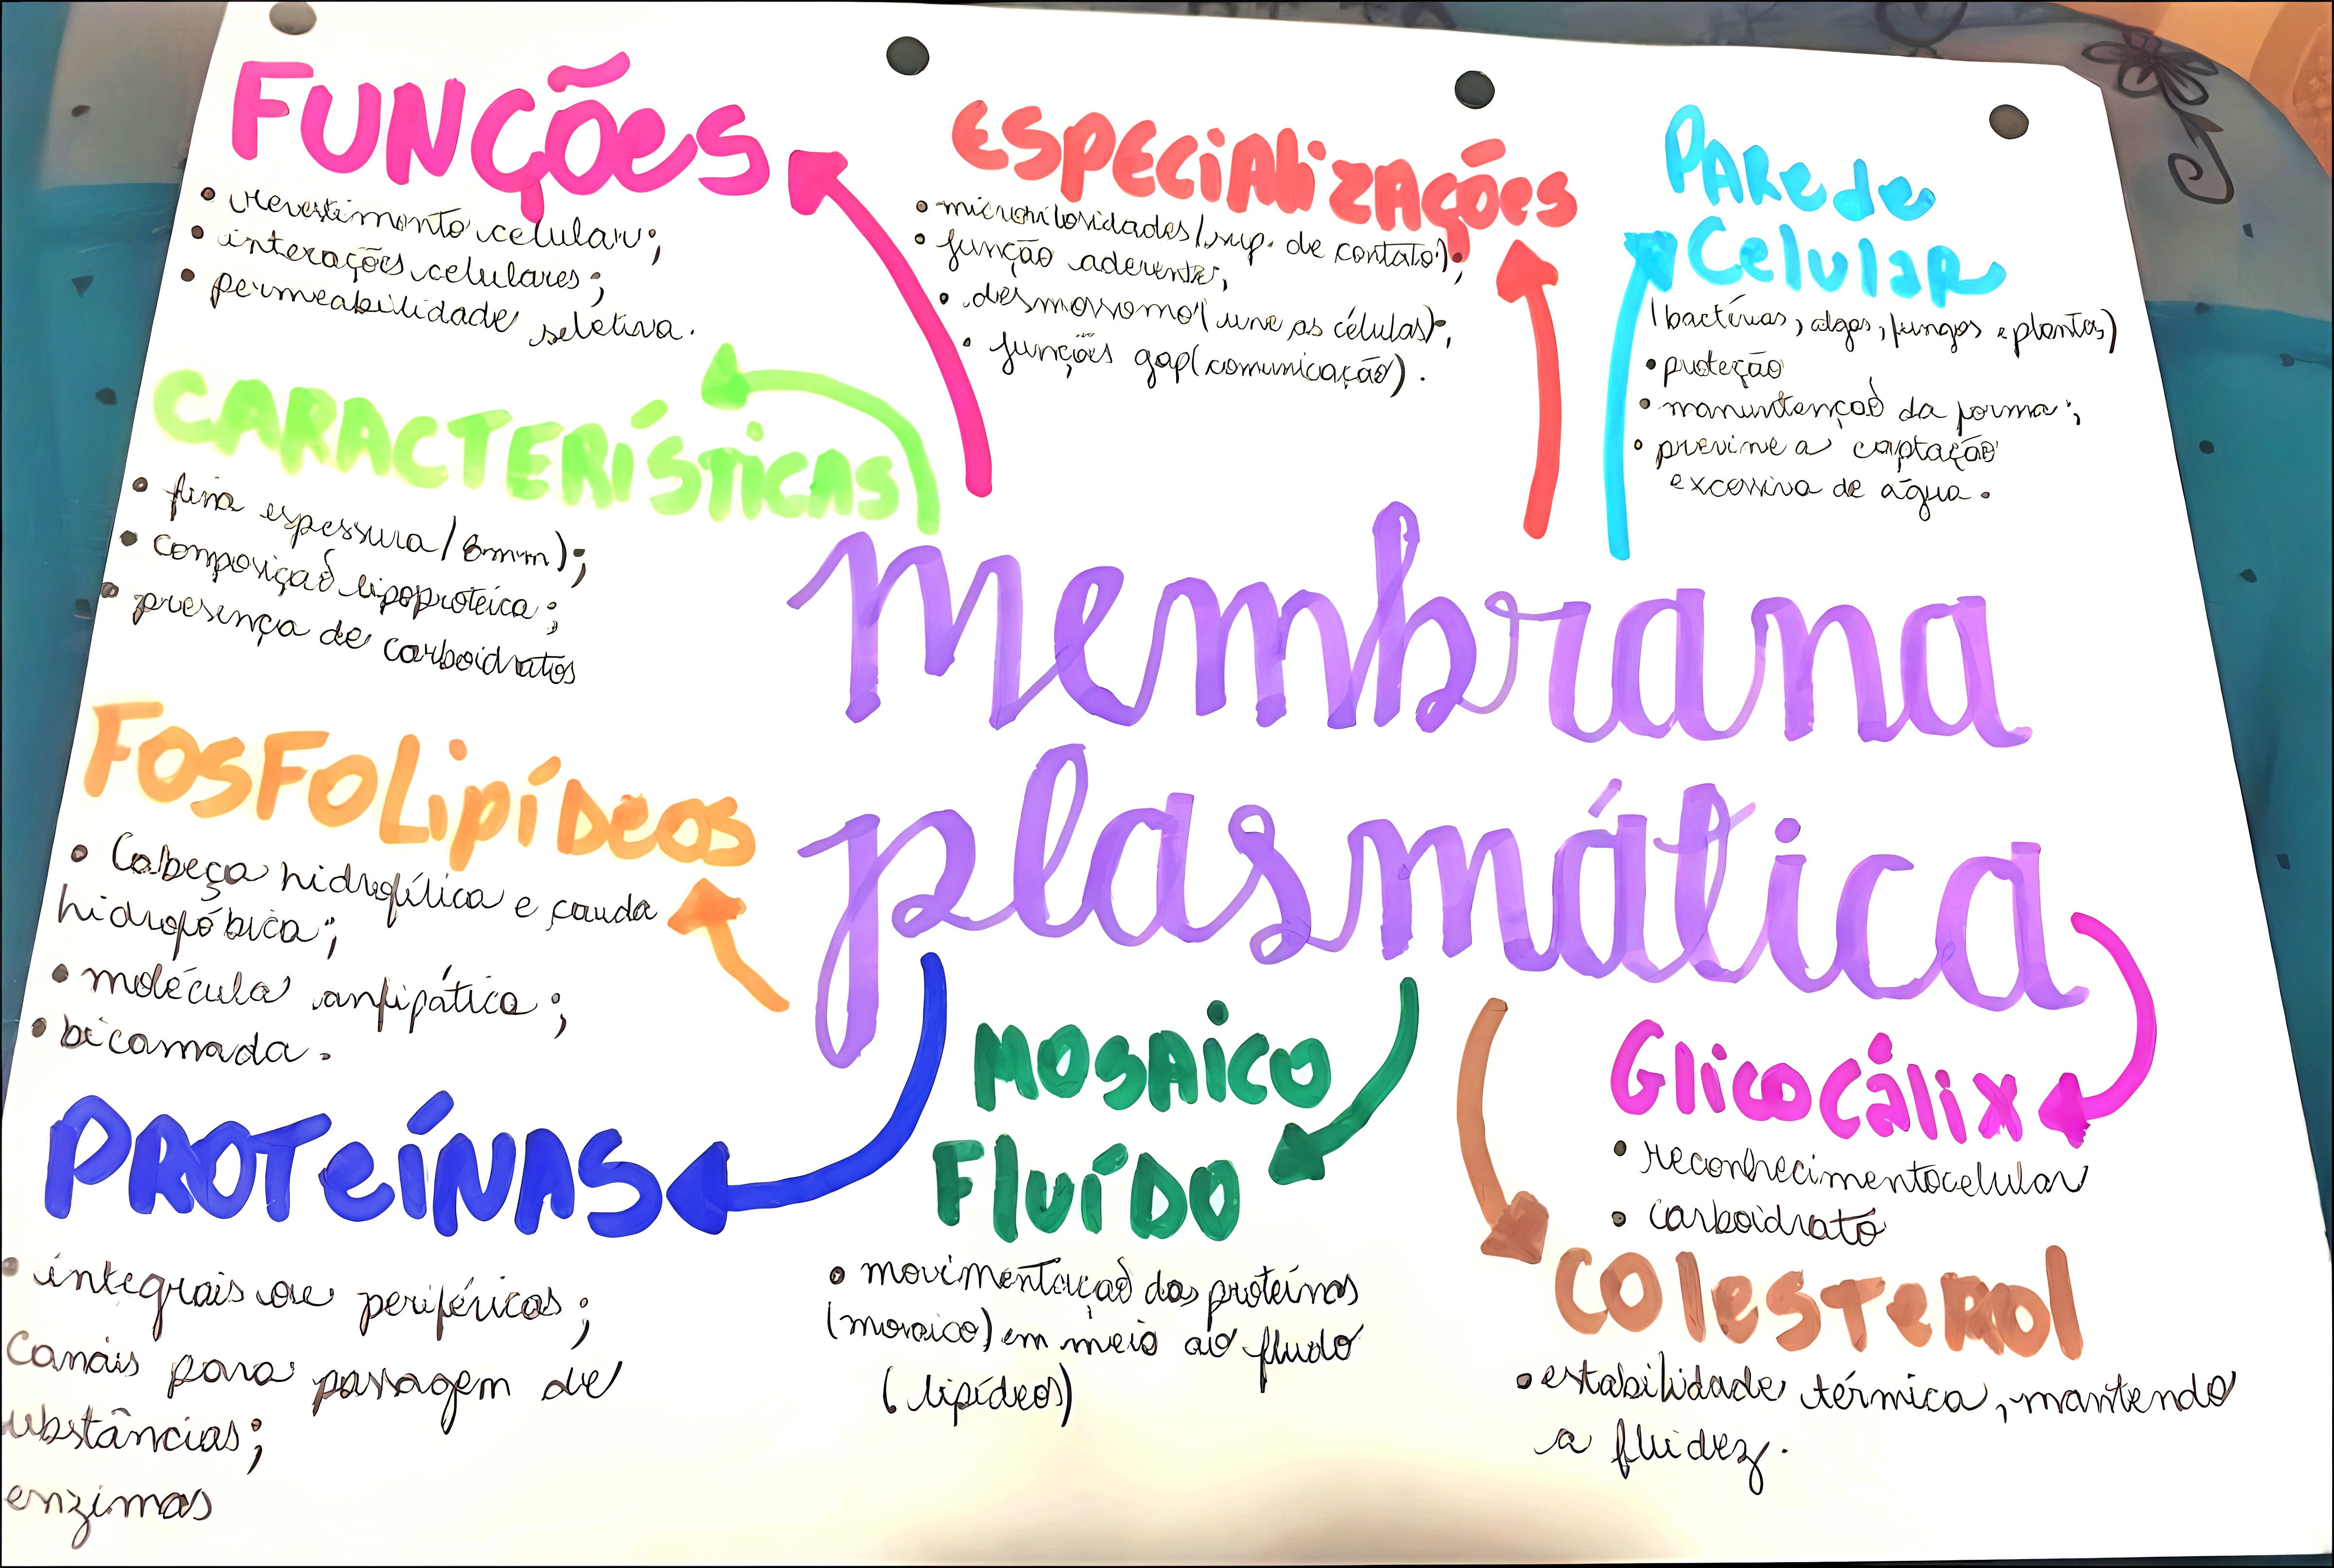 FUNÇÕES
• revestimento celular;
• interações celulares;
• permeabilidade seletiva.
ESPECIALIZAÇÕES
• microvilosidades (sup. de contato);
• função aderente;
• desmossomo (une as células);
• funções gap (comunicação).
PAREDE
CELULAR
(bactérias, algas, fungos e plantas)
• proteção
• manuntenção da forma;
• previne a captação
excessiva de água.
CARACTERÍSTICAS
• fina espessura (8mm);
• composição lipoproteica;
• presença de carboidratos
membrana
plasmática
FOSFOLIPÍDEOS
• Cabeça hidrofílica e cauda
hidrofóbica;
• molécula anfipática;
• bicamada.
PROTEÍNAS
• integrais ou periféricas;
Canais para passagem de
ubstâncias;
enzimas
MOSAICO
FLUÍDO
• movimentação das proteínas
(mosaico) em meio ao fludo
(lipídeos)
GLICOCÁLIX
• reconhecimento celular
• carboidrato
COLESTEROL
• estabilidade térmica, mantendo
a fluidez.